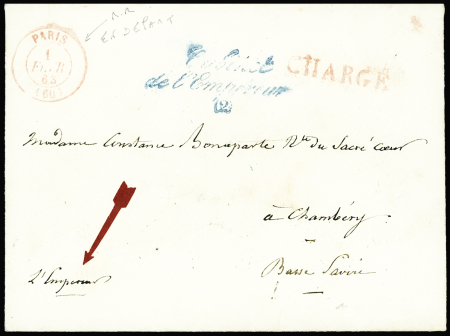 PARIS
1
FEVR
(60)
Cabinet
de l'Empereur
(2)
CHARGÉ
Madame Constance Bonaparte Rse du Sacré Coeur
à Chambéry
Basse Savoie
L'Empereur